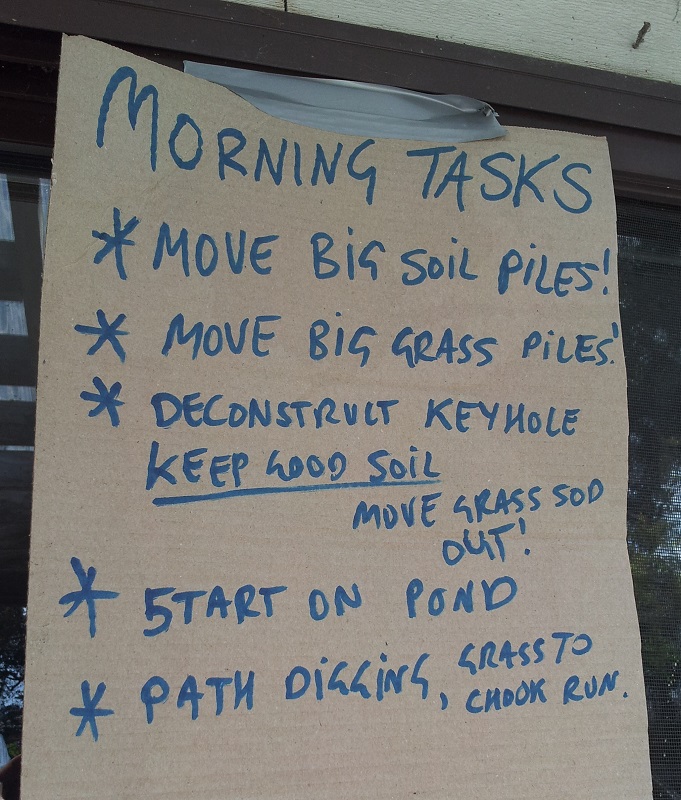 MORNING TASKS
* MOVE BIG SOIL PILES!
* MOVE BIG GRASS PILES!
* DECONSTRUCT KEYHOLE
KEEP GOOD SOIL
MOVE GRASS SOD
OUT!
* START ON POND
* PATH DIGGING, GRASS TO
CHOOK RUN.